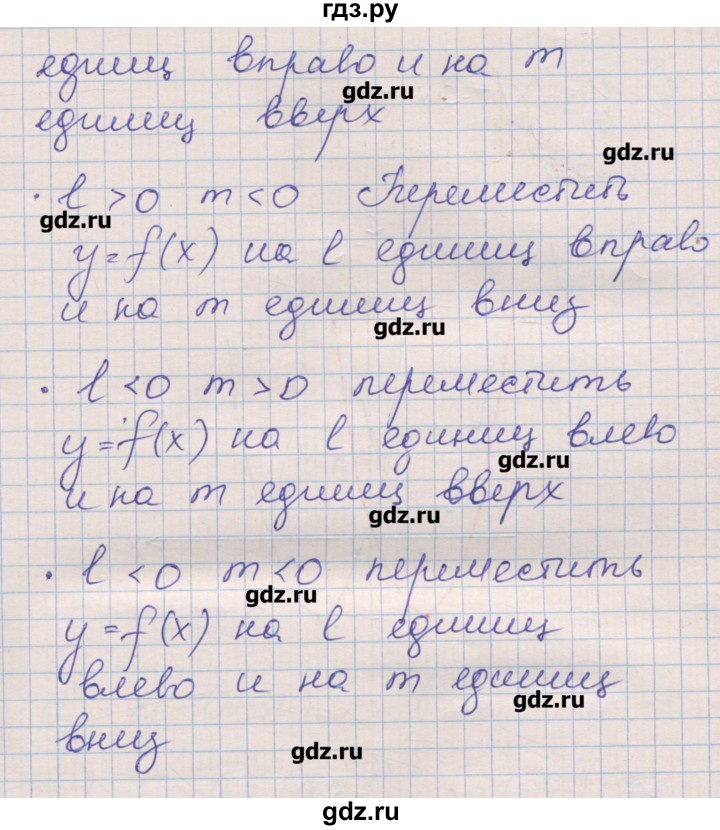 гдз.ру
единиц вправо и на m
gdz.ru
единиц вверх
gdz.ru
· l > 0 m < 0 Переместить
gdz.ru
y = f(x) на l единиц вправо
и на m единиц вниз
gdz.ru
· l < 0 m > 0 переместить
y = f(x) на l единиц влево
gdz.ru
и на m единиц вверх
gdz.ru
· l < 0 m < 0 переместить
gdz.ru
y = f(x) на l единиц
влево и на m единиц
gdz.ru
вниз
gdz.ru
gdz.ru